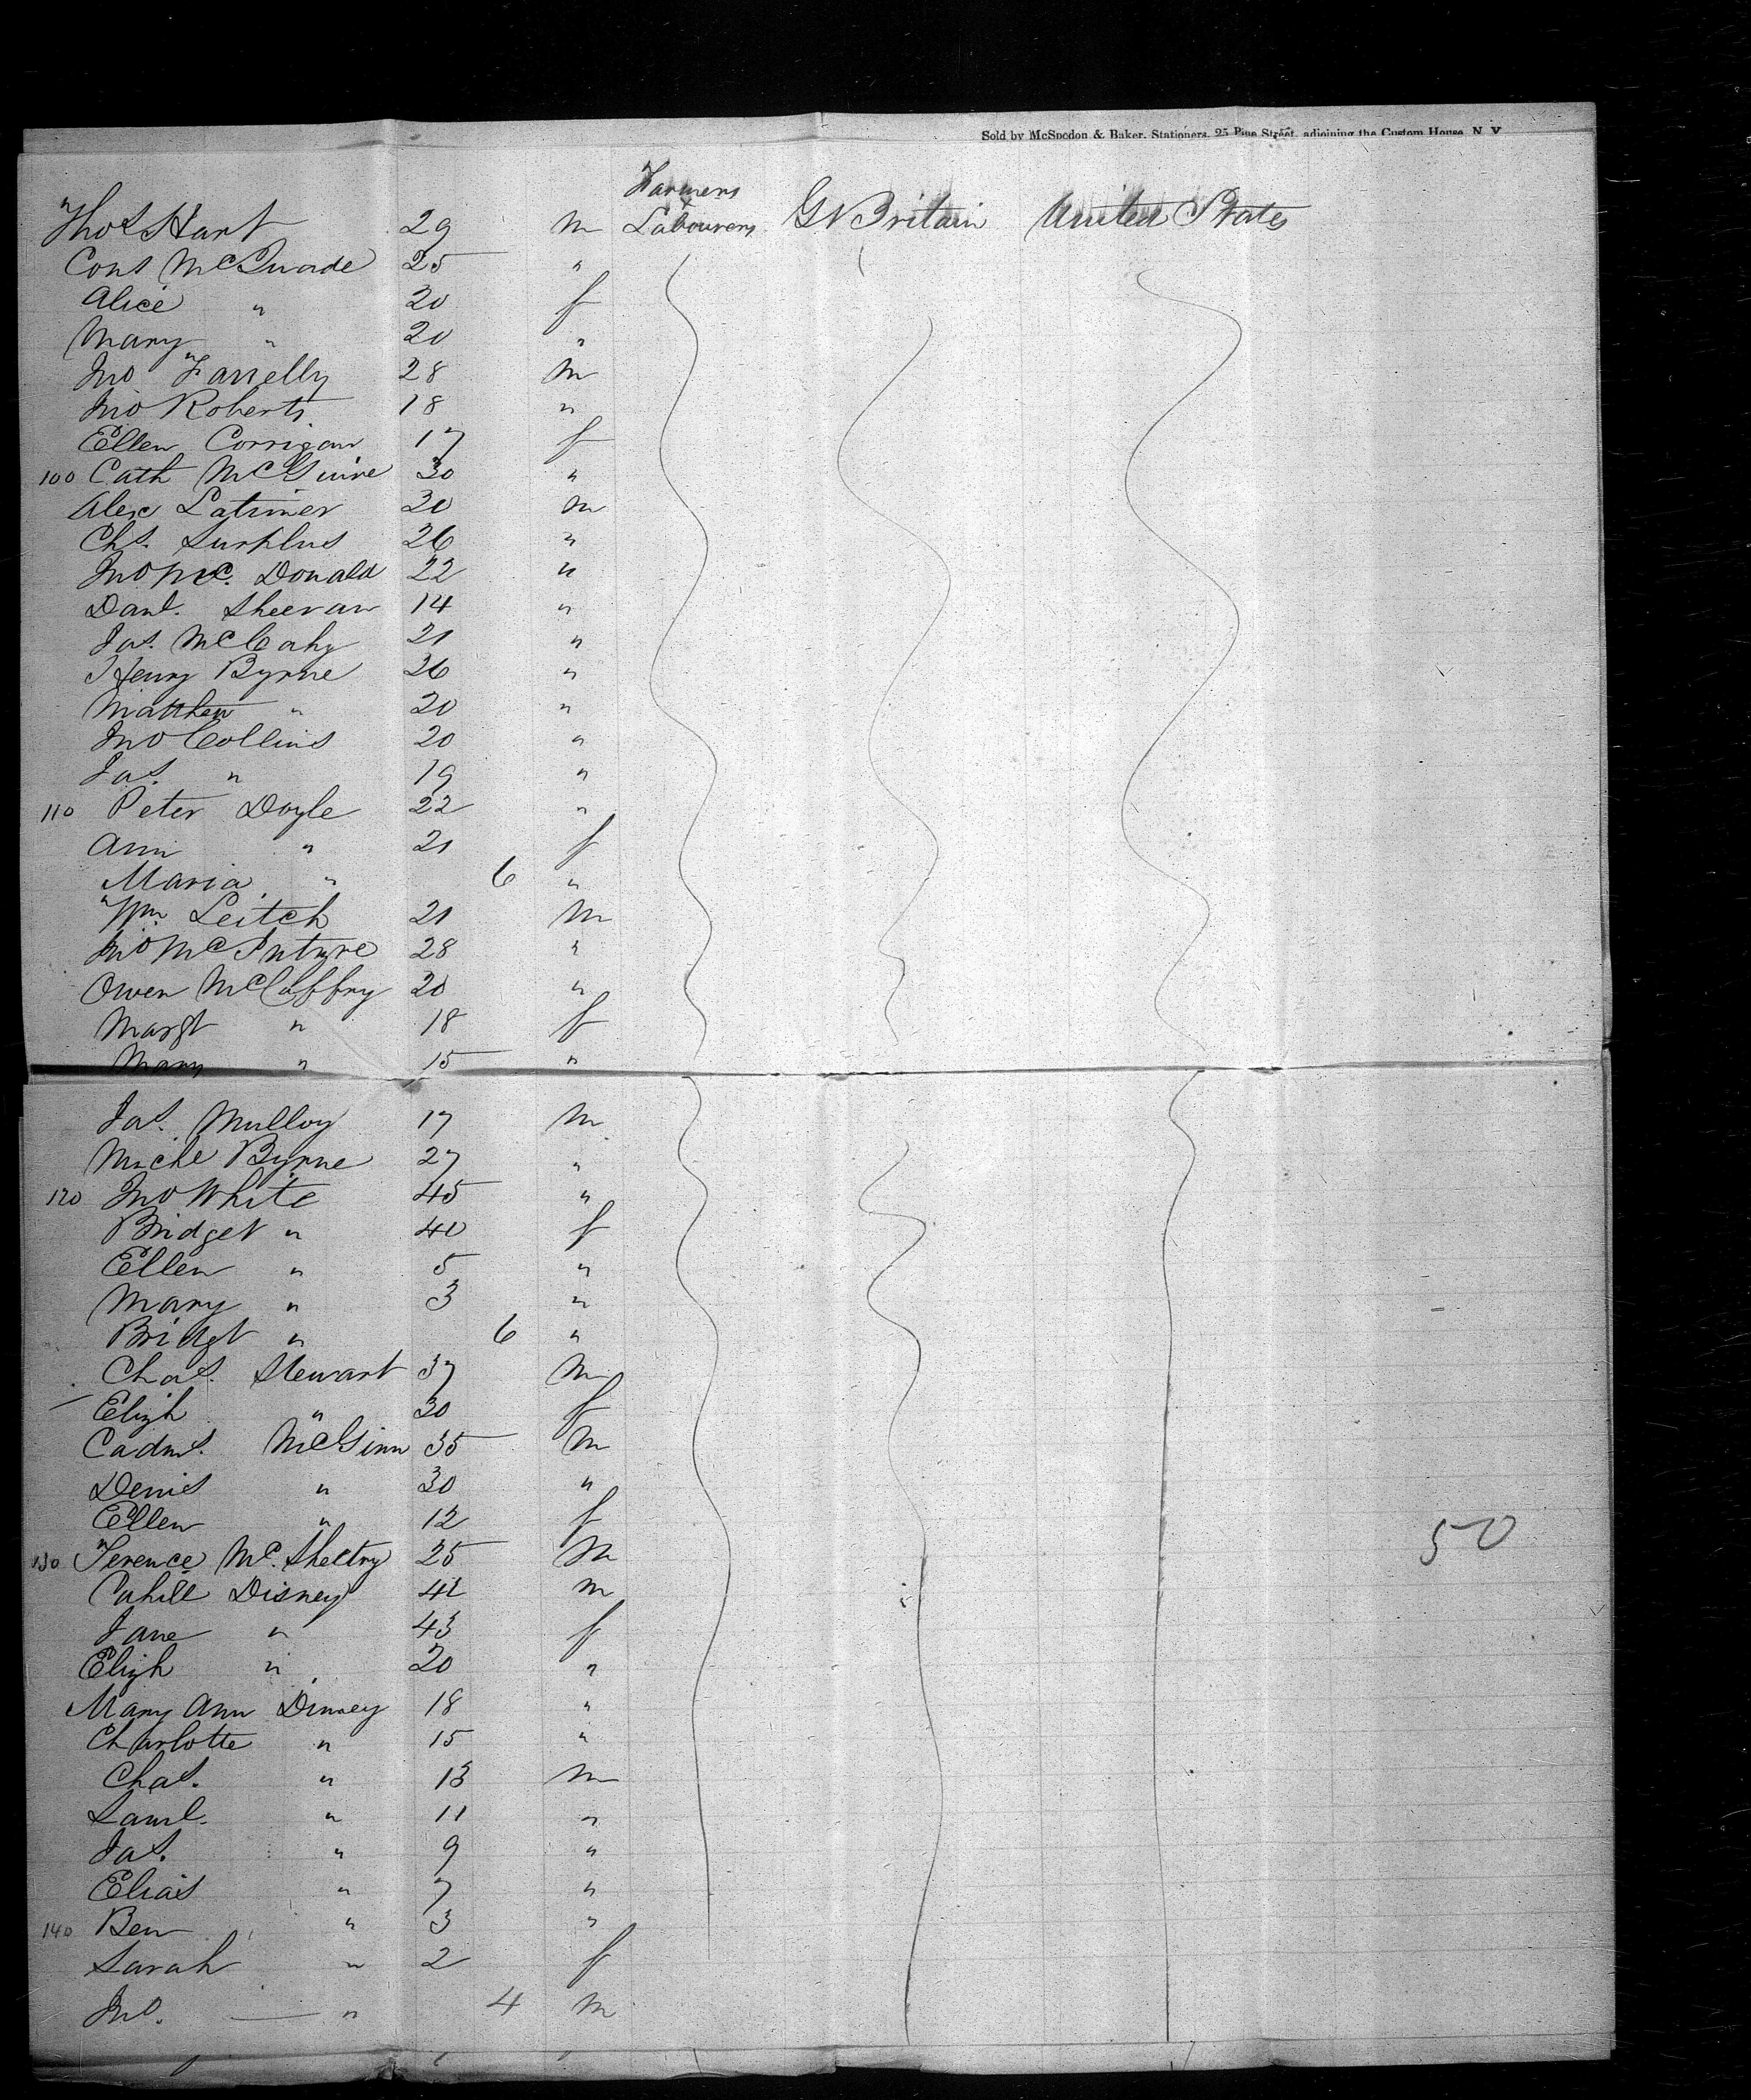 Sold by McSpedon & Baker, Stationers, 25 Pine Street, adjoining the Custom House, N. Y.
Farmers
Thos Hart 29 m Labourers Gt Britain United States
Cons McQuade 25 "
Alice " 20 f
Mary " 20 "
Jno Farrelly 28 m
Jno Roberts 18 "
Ellen Corrigan 17 f
100 Cath McGuire 30 "
Alex Latimer 30 m
Chs. Surplus 26 "
Jno Mc. Donald 22 "
Danl. Sheevan 14 "
Jas. McCahy 21 "
Henry Byrne 26 "
Matthew " 20 "
Jno Collins 20 "
Jas. " 19 "
110 Peter Doyle 22 "
Ann " 21 f
Maria " 6 "
Wm Leitch 21 m
Jno McIntyre 28 "
Owen McCaffry 20 "
Margt " 18 f
Mary " 15 "
Jas. Mulloy 17 m
Michl Byrne 27 "
120 Jno White 45 "
Bridget " 40 f
Ellen " 5 "
Mary " 3 "
Bridgt " 6 "
Chas. Stewart 37 m
Elizh " 30 f
McGinn 35 m
Denis " 30 "
Ellen " 12 f
130 Terence Mc. Sheltry 25 m
Cahill Disney 42 m
Jane " 43 f
Elizh " 20 "
Mary Ann Dinney 18 "
Charlotte " 15 "
Chas. " 13 m
Saml. " 11 "
Jas. " 9 "
Elias " 7 "
140 Ben " 3 "
Sarah " 2 f
Jno. " 4 m
50